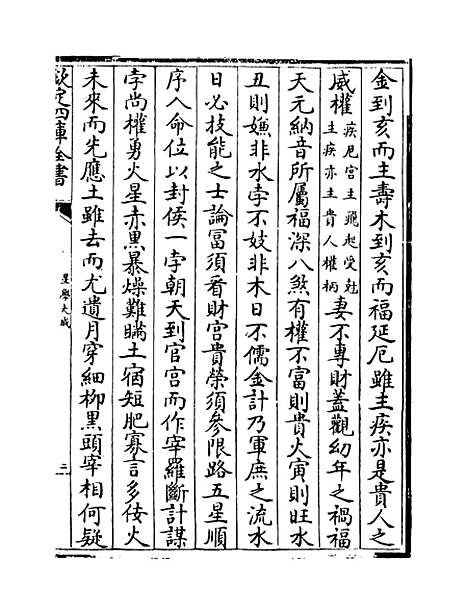 金到亥而主壽木到亥而福延厄雖主疾亦是貴人之
威權疾厄宫主飛起受尅主疾亦主貴人權柄妻不專財蓋觀幼年之禍福
天元納音所屬福深八煞有權不富則貴火寅則旺水
丑則嫌非水孛不妓非木日不儒金計乃軍庶之流水
日必技能之士論冨須看財宫貴榮須參限路五星順
序入命位以封侯一孛朝天到官宫而作宰羅斷計謀
孛尚權勇火星赤黒暴燥難瞞土宿短肥寡言多佞火
未來而先應土雖去而尤遺月穿細栁黒頭宰相何疑
欽定四庫全書
星學大成
三